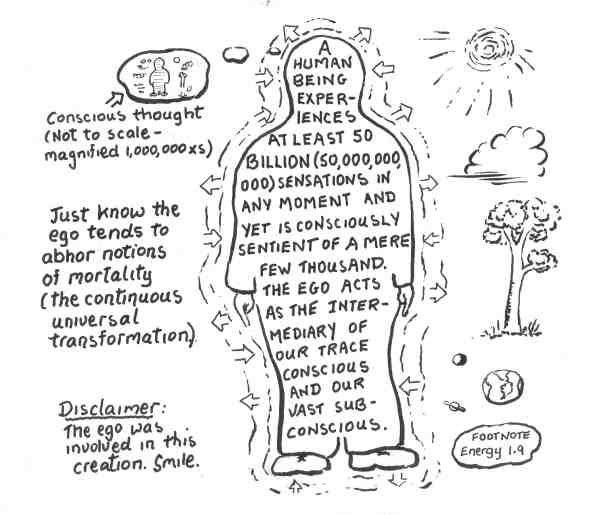 Conscious thought
(Not to scale-
magnified 1,000,000xs)
Just know the
ego tends to
abhor notions
of mortality
(the continuous
universal
transformation)
Disclaimer:
The ego was
involved in this
creation. Smile.
A
HUMAN
BEING
EXPER-
IENCES
AT LEAST 50
BILLION (50,000,000,
000) SENSATIONS IN
ANY MOMENT AND
YET IS CONSCIOUSLY
SENTIENT OF A MERE
FEW THOUSAND.
THE EGO ACTS
AS THE INTER-
MEDIARY OF
OUR TRACE
CONSCIOUS
AND OUR
VAST SUB-
CONSCIOUS.
FOOTNOTE
Energy 1.9